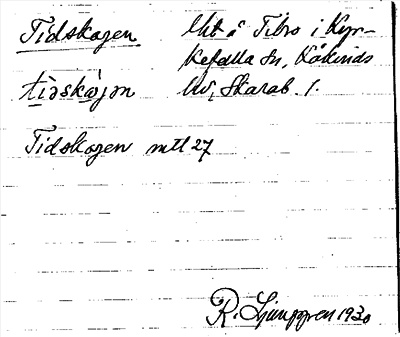 Tidskogen Utb å Tibro i Kyr-
kefalla sn, Kåkinds
tidskọjən hd, Skarab. l.
Tidskogen mtl 27
R. Ljunggren 1930